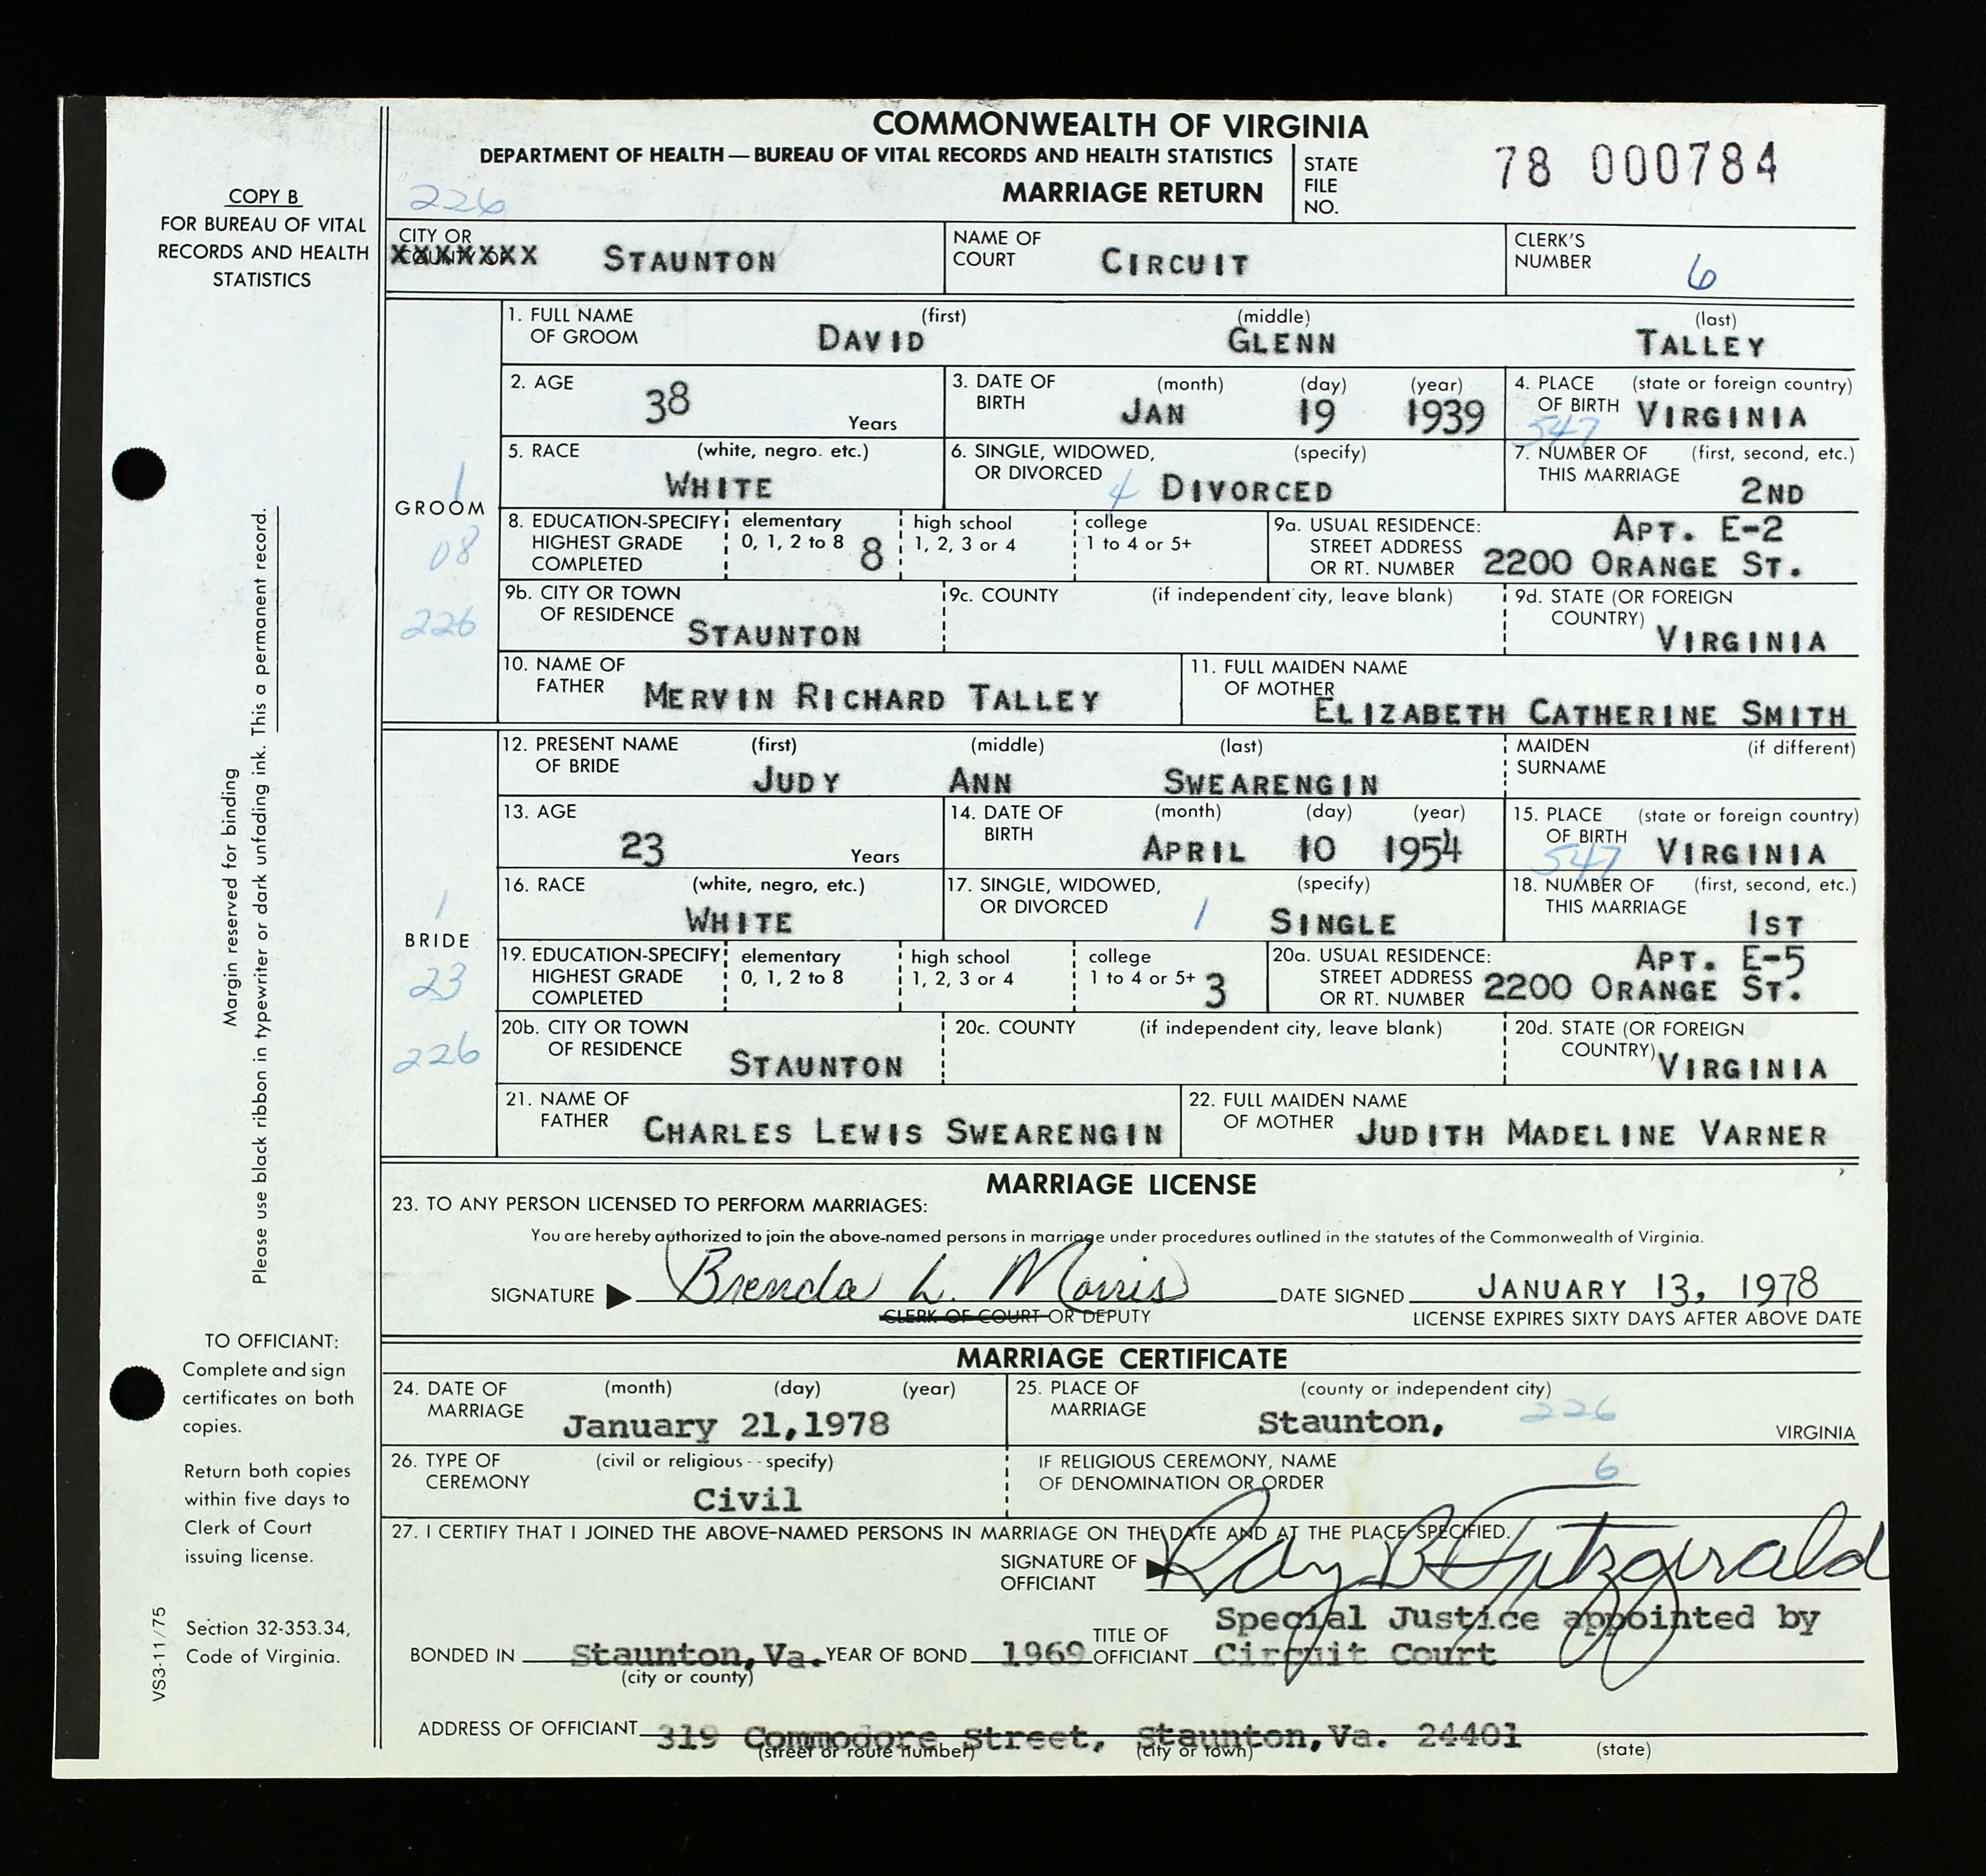 COMMONWEALTH OF VIRGINIA
DEPARTMENT OF HEALTH — BUREAU OF VITAL RECORDS AND HEALTH STATISTICS
MARRIAGE RETURN
STATE FILE NO. 78 000784
226
COPY B
FOR BUREAU OF VITAL
RECORDS AND HEALTH
STATISTICS
CITY OR
COUNTY OF XXXXXXX STAUNTON
NAME OF COURT CIRCUIT
CLERK'S NUMBER 6
GROOM
1
08
226
1. FULL NAME OF GROOM (first) DAVID (middle) GLENN (last) TALLEY
2. AGE 38 Years
3. DATE OF BIRTH (month) JAN (day) 19 (year) 1939
4. PLACE OF BIRTH (state or foreign country) VIRGINIA 547
5. RACE (white, negro. etc.) WHITE
6. SINGLE, WIDOWED, OR DIVORCED (specify) 4 DIVORCED
7. NUMBER OF THIS MARRIAGE (first, second, etc.) 2ND
8. EDUCATION-SPECIFY HIGHEST GRADE COMPLETED elementary 0, 1, 2 to 8 8 high school 1, 2, 3 or 4 college 1 to 4 or 5+
9a. USUAL RESIDENCE: STREET ADDRESS OR RT. NUMBER APT. E-2 2200 ORANGE ST.
9b. CITY OR TOWN OF RESIDENCE STAUNTON
9c. COUNTY (if independent city, leave blank)
9d. STATE (OR FOREIGN COUNTRY) VIRGINIA
10. NAME OF FATHER MERVIN RICHARD TALLEY
11. FULL MAIDEN NAME OF MOTHER ELIZABETH CATHERINE SMITH
BRIDE
1
23
226
12. PRESENT NAME OF BRIDE (first) JUDY (middle) ANN (last) SWEARENGIN
MAIDEN SURNAME (if different)
13. AGE 23 Years
14. DATE OF BIRTH (month) APRIL (day) 10 (year) 1954
15. PLACE OF BIRTH (state or foreign country) VIRGINIA 547
16. RACE (white, negro, etc.) WHITE
17. SINGLE, WIDOWED, OR DIVORCED (specify) 1 SINGLE
18. NUMBER OF THIS MARRIAGE (first, second, etc.) 1ST
19. EDUCATION-SPECIFY HIGHEST GRADE COMPLETED elementary 0, 1, 2 to 8 high school 1, 2, 3 or 4 college 1 to 4 or 5+ 3
20a. USUAL RESIDENCE: STREET ADDRESS OR RT. NUMBER APT. E-5 2200 ORANGE ST.
20b. CITY OR TOWN OF RESIDENCE STAUNTON
20c. COUNTY (if independent city, leave blank)
20d. STATE (OR FOREIGN COUNTRY) VIRGINIA
21. NAME OF FATHER CHARLES LEWIS SWEARENGIN
22. FULL MAIDEN NAME OF MOTHER JUDITH MADELINE VARNER
MARRIAGE LICENSE
23. TO ANY PERSON LICENSED TO PERFORM MARRIAGES:
You are hereby authorized to join the above-named persons in marriage under procedures outlined in the statutes of the Commonwealth of Virginia.
SIGNATURE Brenda L. Morris DATE SIGNED JANUARY 13, 1978
CLERK OF COURT OR DEPUTY
LICENSE EXPIRES SIXTY DAYS AFTER ABOVE DATE
MARRIAGE CERTIFICATE
24. DATE OF MARRIAGE (month) (day) (year) January 21,1978
25. PLACE OF MARRIAGE (county or independent city) Staunton, 226 VIRGINIA
26. TYPE OF CEREMONY (civil or religious -- specify) Civil
IF RELIGIOUS CEREMONY, NAME OF DENOMINATION OR ORDER 6
27. I CERTIFY THAT I JOINED THE ABOVE-NAMED PERSONS IN MARRIAGE ON THE DATE AND AT THE PLACE SPECIFIED.
SIGNATURE OF OFFICIANT Ray B Fitzgerald
BONDED IN Staunton, Va. YEAR OF BOND 1969 TITLE OF OFFICIANT Special Justice appointed by Circuit Court
(city or county)
ADDRESS OF OFFICIANT 319 Commodore Street, Staunton, Va. 24401
(street or route number) (city or town) (state)
Margin reserved for binding
Please use black ribbon in typewriter or dark unfading ink. This a permanent record.
TO OFFICIANT:
Complete and sign
certificates on both
copies.
Return both copies
within five days to
Clerk of Court
issuing license.
Section 32-353.34,
Code of Virginia.
VS3-11/75